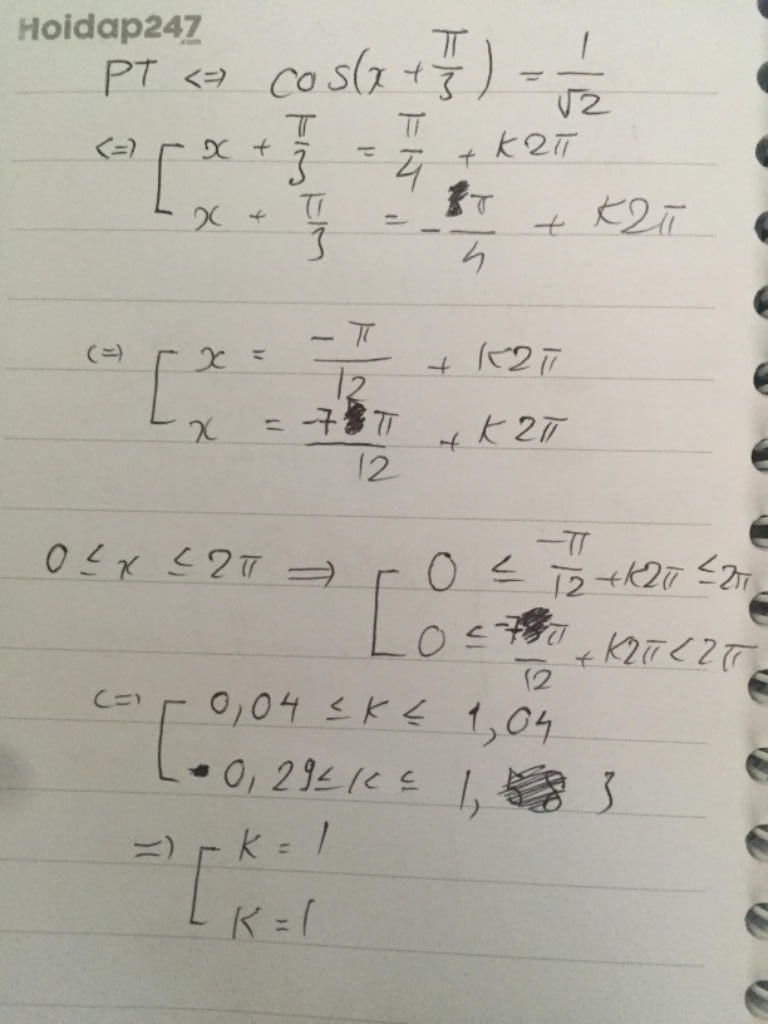 Hoidap247.com
PT <=> cos(x + π/3) = 1/√2
<=> [ x + π/3 = π/4 + K2π
x + π/3 = -π/4 + K2π
<=> [ x = -π/12 + K2π
x = -7π/12 + K2π
0 ≤ x ≤ 2π => [ 0 ≤ -π/12 + K2π ≤ 2π
0 ≤ -7π/12 + K2π < 2π
<=> [ 0,04 ≤ K ≤ 1,04
0,29 ≤ K ≤ 1,3
=> [ K = 1
K = 1